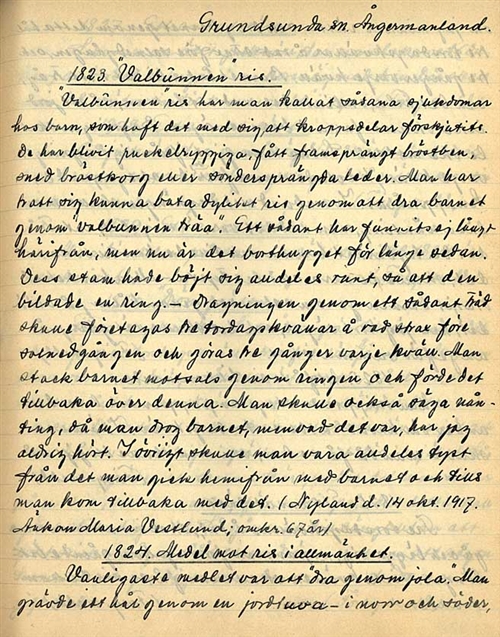 Grundsunda sn. Ångermanland.
1823. "Valbünnen" ris.
"Valbünnen" ris har man kallat sådana sjukdomar
hos barn, som haft det med sig att kroppsdelar förskjutits.
De har blivit puckelryggiga, fått framsprängt bröstben,
sned bröstkorg eller söndersprängda leder. Man har
trott sig kunna bota dylikt ris genom att dra barnet
genom "valbunnen träa". Ett sådant har funnits ej långt
härifrån, men nu är det borthugget för länge sedan.
Dess stam hade böjt sig alldeles runt, så att den
bildade en ring. – Dragningen genom ett sådant träd
skulle företagas tre torsdagskvällar å rad strax före
solnedgången och göras tre gånger varje kväll. Man
stack barnet motsols genom ringen och förde det
tillbaka över denna. Man skulle också säga nån-
ting, då man drog barnet, men vad det var, har jag
aldrig hört. I övrigt skulle man vara alldeles tyst
från det man gick hemifrån med barnet och tills
man kom tillbaka med det. (Nyland d. 14 okt. 1917.
Änkan Maria Vestlund; omkr. 67 år)
1824. Medel mot ris i allmänhet.
Vanligaste medlet var att "dra genom jola." Man
grävde ett hål genom en jordtuva – i norr och söder,